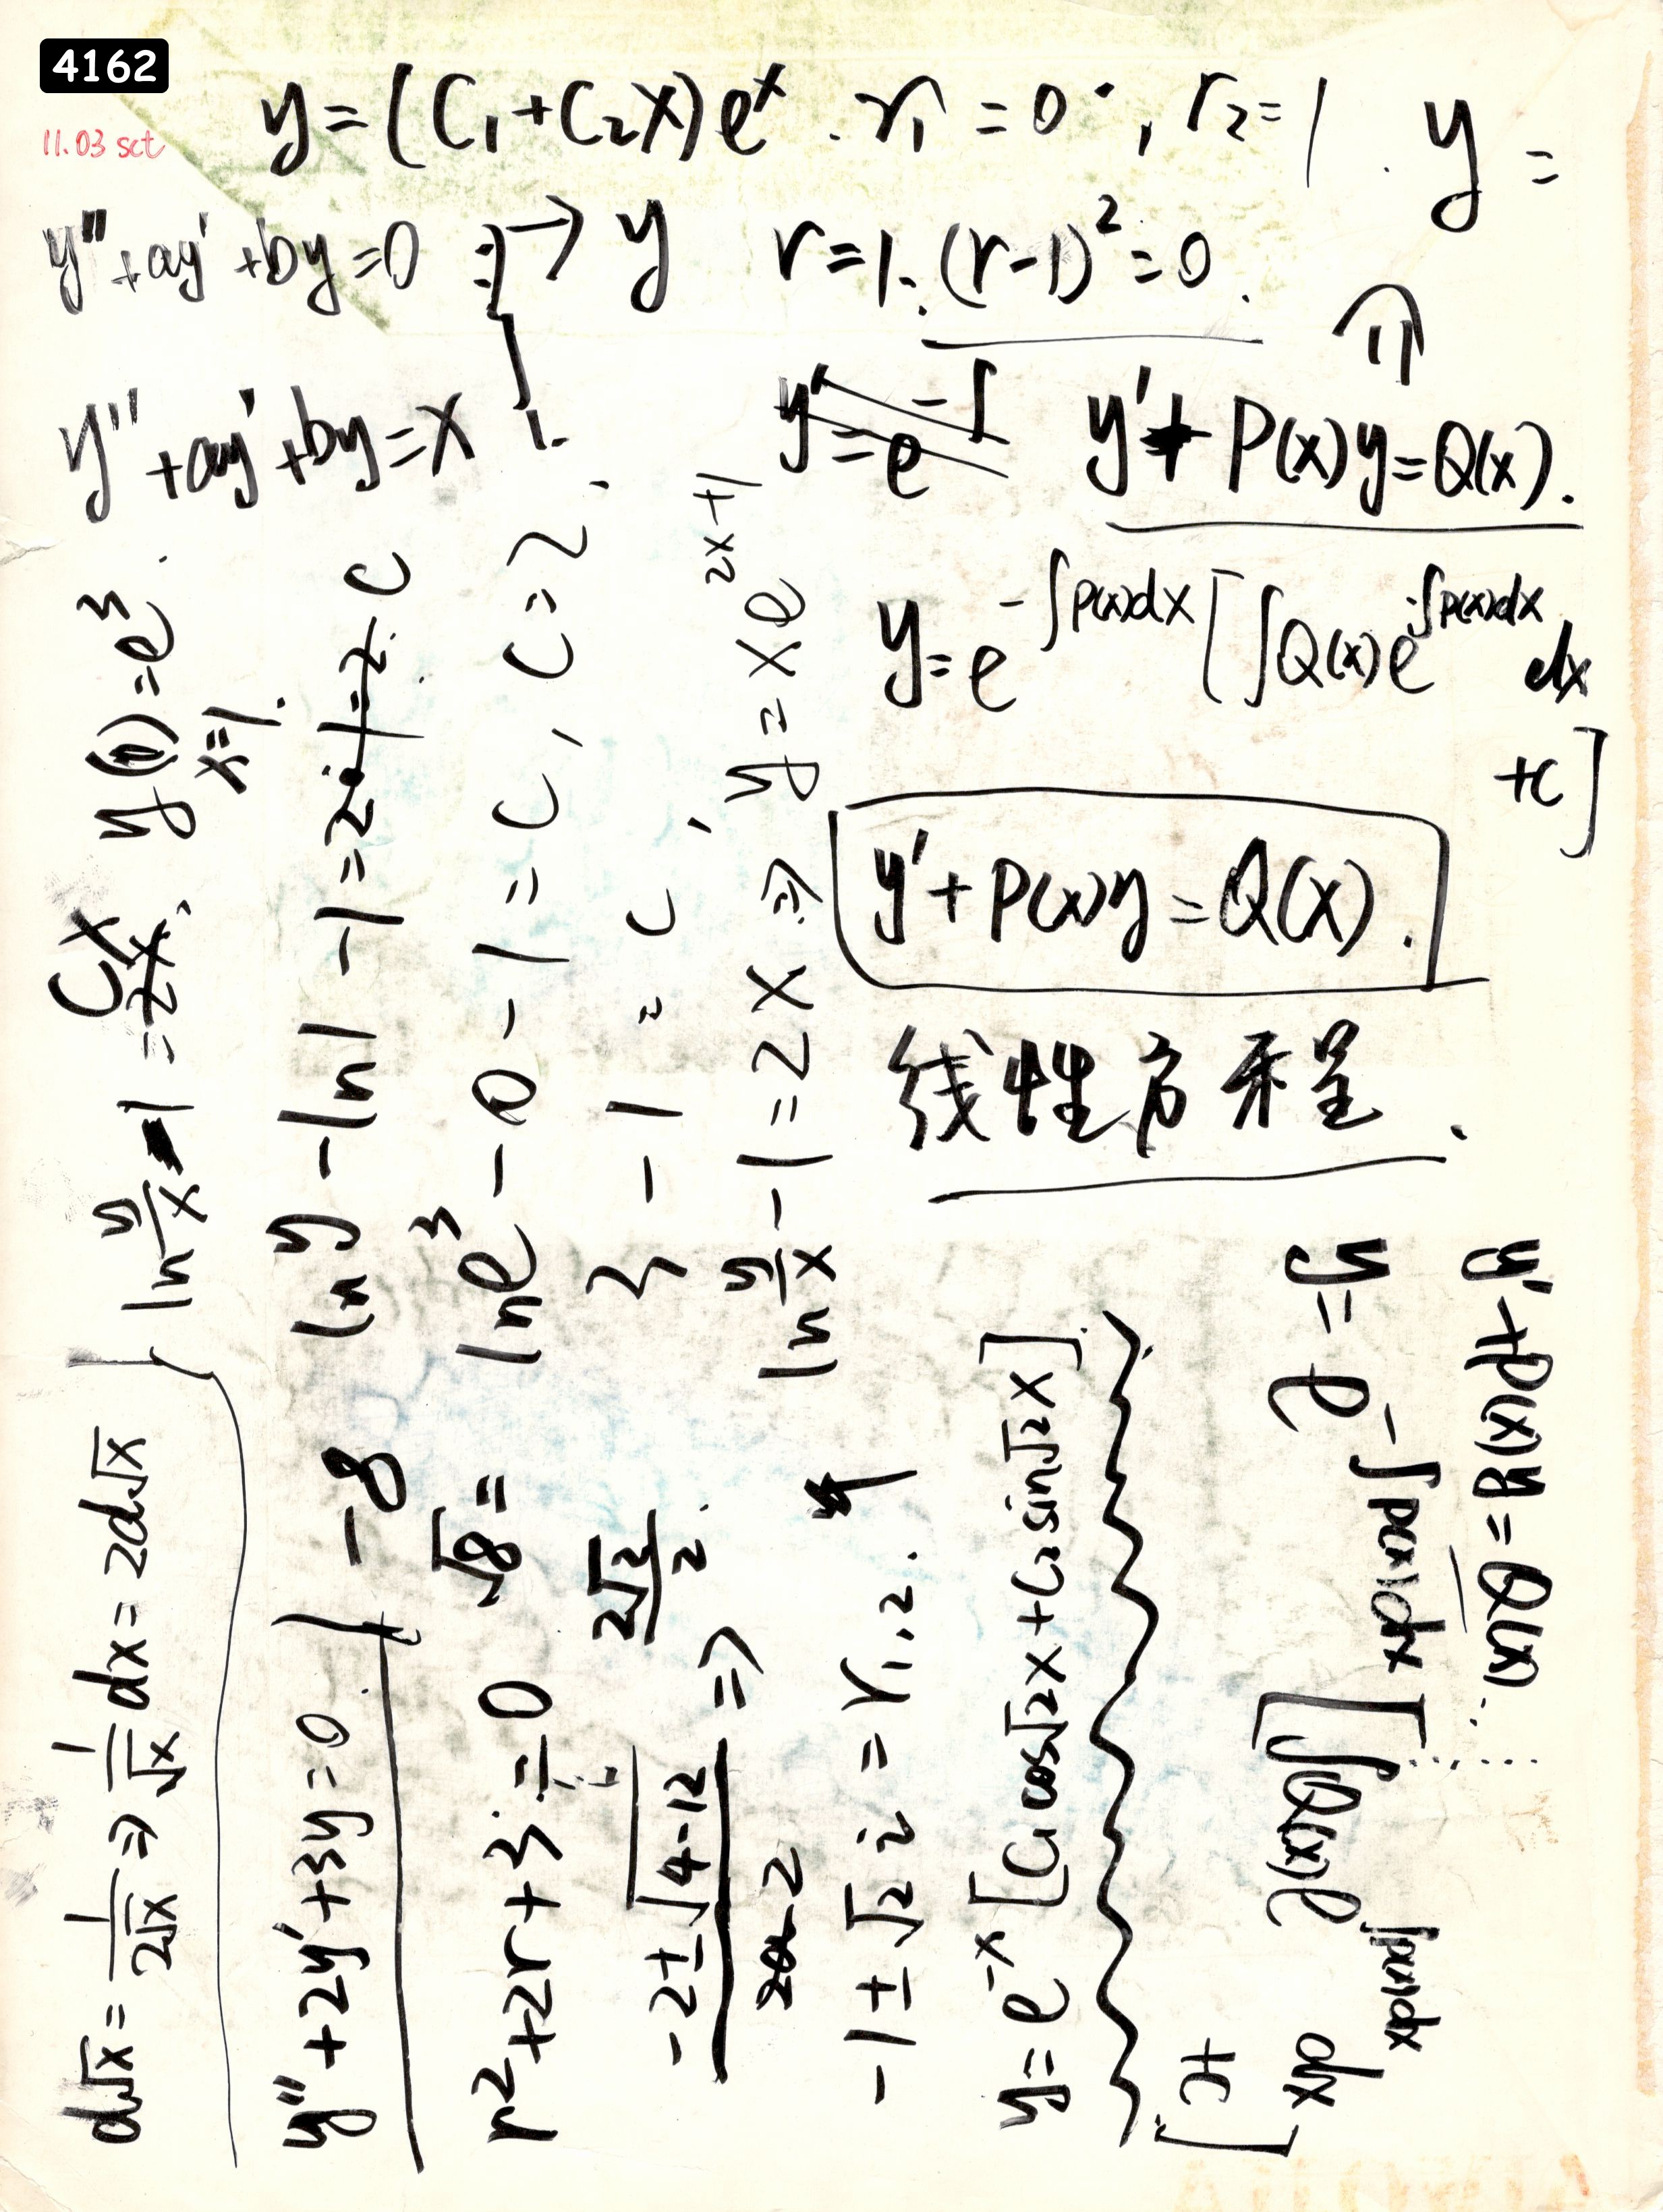 4162
11.03 sct
y=(C₁+C₂x)eˣ. r₁=0, r₂=1. y=
y''+ay'+by=0 ⇒ y r=1. (r-1)²=0.
y''+ay'+by=x
y'=e^-∫ y'+P(x)y=Q(x).
y=e^-∫P(x)dx [∫Q(x)e^∫P(x)dx dx
+C]
y'+P(x)y=Q(x).
线性方程.
d√x = 1/(2√x) ⇒ 1/√x dx = 2d√x
ln y/x - 1 = Cx, y(1)=e³.
x=1.
ln y - ln 1 - 1 = C
ln e³ - 0 - 1 = C, C=2,
3 - 1 = C,
ln y/x - 1 = 2x ⇒ y = xe^2x+1
y''+2y'+3y=0. -8
r²+2r+3=0 √8=
(-2±√(4-12))/2 ⇒ 2√2/2.
-1±√2 i = r₁,₂.
y=e^-x [C₁cos√2x+C₂sin√2x].
y'+P(x)y=Q(x)
y=e^-∫P(x)dx [∫Q(x)e^∫P(x)dx dx
+C]